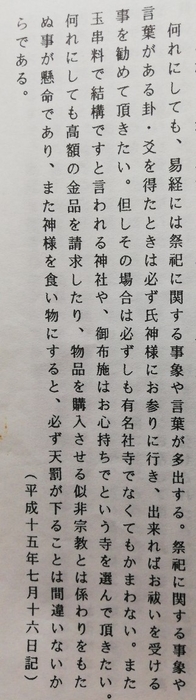 何れにしても、易経には祭祀に関する事象や言葉が多出する。祭祀に関する事象や
言葉がある卦・爻を得たときは必ず氏神様にお参りに行き、出来ればお祓いを受ける
事を勧めて頂きたい。但しその場合は必ずしも有名社寺でなくてもかまわない。また
玉串料で結構ですと言われる神社や、御布施はお心持ちでという寺を選んで頂きたい。
何れにしても高額の金品を請求したり、物品を購入させる似非宗教とは係わりをもた
ぬ事が懸命であり、また神様を食い物にすると、必ず天罰が下ることは間違いないか
らである。
(平成十五年七月十六日記)